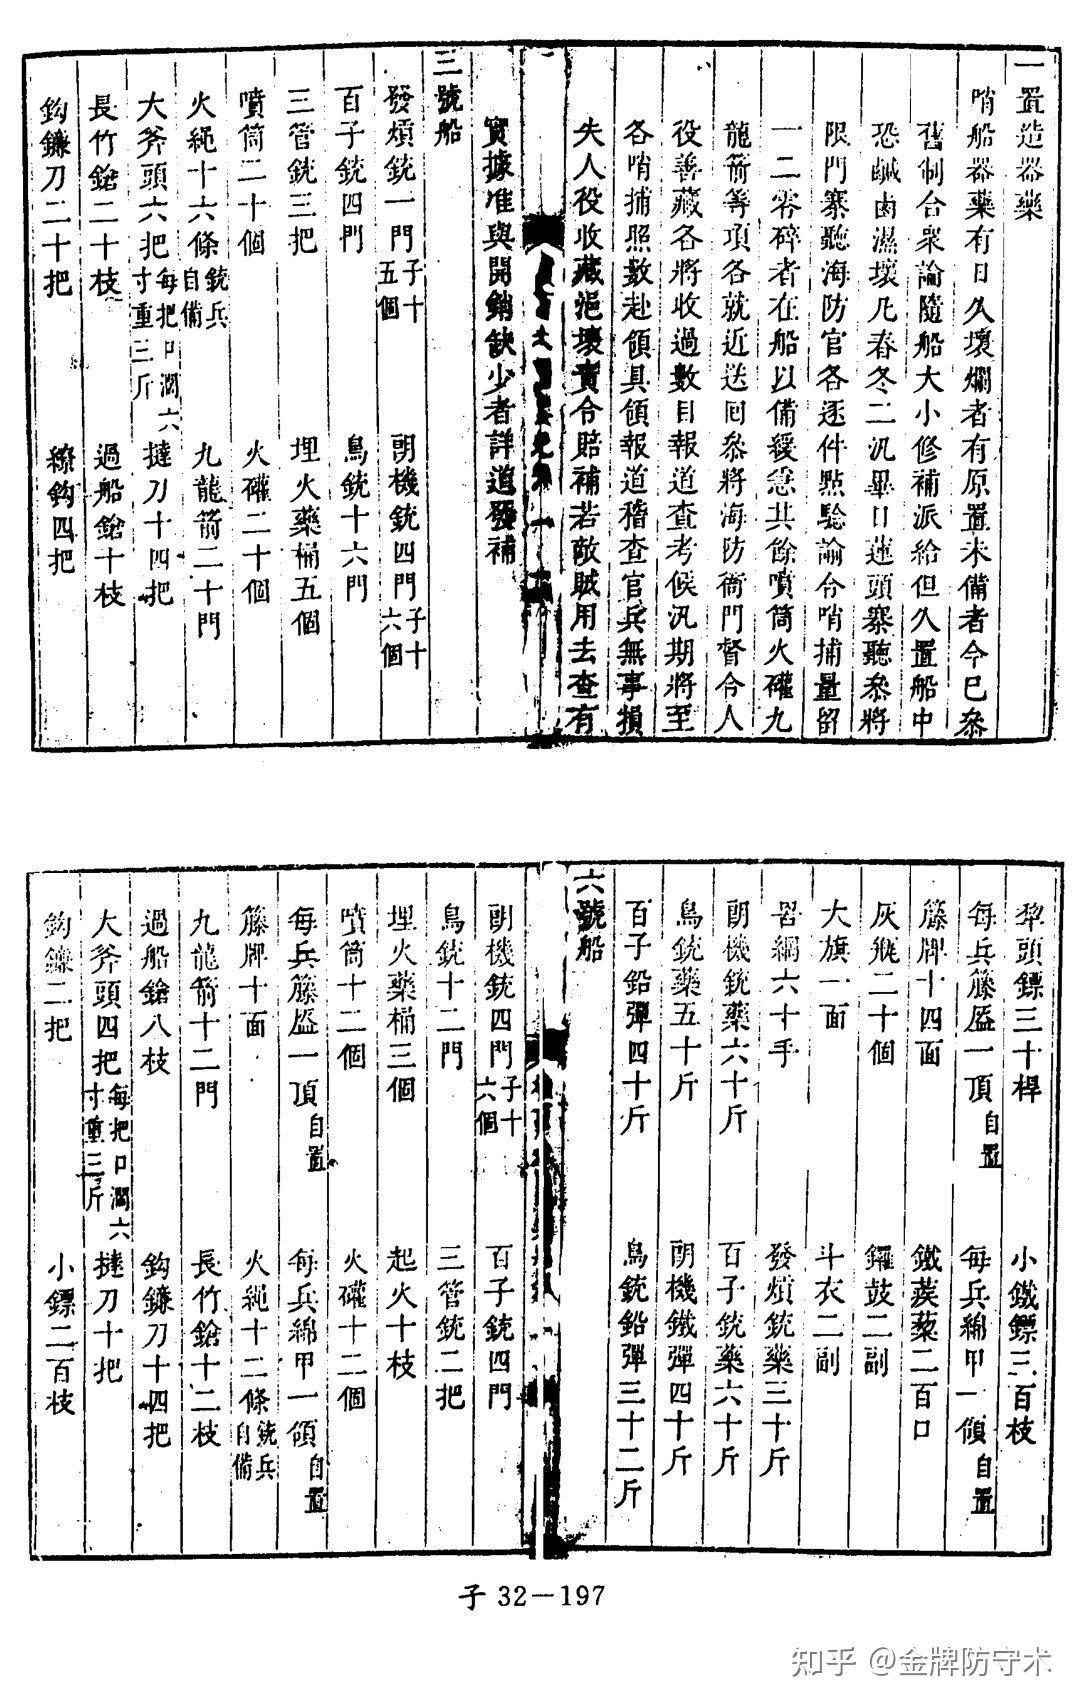 一置造器藥
哨船器藥有日久壞爛者有原置未備者今已叅
舊制合衆論隨船大小修補派給但久置船中
恐鹹鹵濕壞凡春冬二汎畢日蓮頭寨聽叅將
限門寨聽海防官各逐件點驗諭令哨捕量留
一二零碎者在船以備緩急其餘噴筒火礶九
龍箭等項各就近送囘叅將海防衙門督令人
役善藏各將收過數目報道查考候汎期將至
各哨捕照數赴領具領報道稽查官兵無事損
失人役收藏浥壞責令賠補若敵賊用去查有
實據准與開銷缺少者詳道發補
三號船
發熕銃一門子十五個 朗機銃四門子十六個
百子銃四門 鳥銃十六門
三管銃三把 埋火藥桶五個
噴筒二十個 火礶二十個
火繩十六條銃兵自備 九龍箭二十門
大斧頭六把每把口濶六寸重三斤 撻刀十四把
長竹鎗二十枝 過船鎗十枝
鈎鐮刀二十把 繚鈎四把
犂頭鏢三十桿 小鐵鏢三百枝
每兵籐盔一頂自置 每兵綿甲一領自置
籐牌十四面 鐵蒺藜二百口
灰瓶二十個 鑼鼓二副
大旗一面 斗衣二副
罟綱六十手 發熕銃藥三十斤
朗機銃藥六十斤 百子銃藥六十斤
鳥銃藥五十斤 朗機鐵彈四十斤
百子鉛彈四十斤 鳥銃鉛彈三十二斤
六號船
朗機銃四門子十六個 百子銃四門
鳥銃十二門 三管銃二把
埋火藥桶三個 起火十枝
噴筒十二個 火礶十二個
每兵籐盔一頂自置 每兵綿甲一領自置
籐牌十面 火繩十二條銃兵自備
九龍箭十二門 長竹鎗十二枝
過船鎗八枝 鈎鐮刀十四把
大斧頭四把每把口濶六寸重三斤 撻刀十把
鈎鐮二把 小鏢二百枝
子 32－197
知乎 @金牌防守术